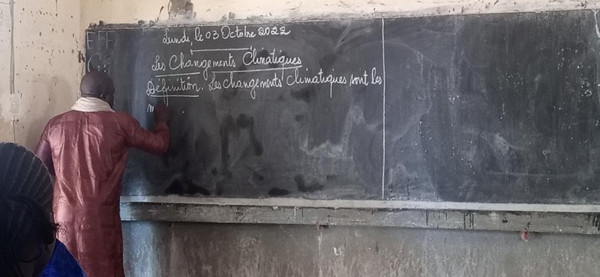 EFE
Lundi, le 03 Octobre 2022
Les Changements Climatiques
Définition. Les changements climatiques sont les
m